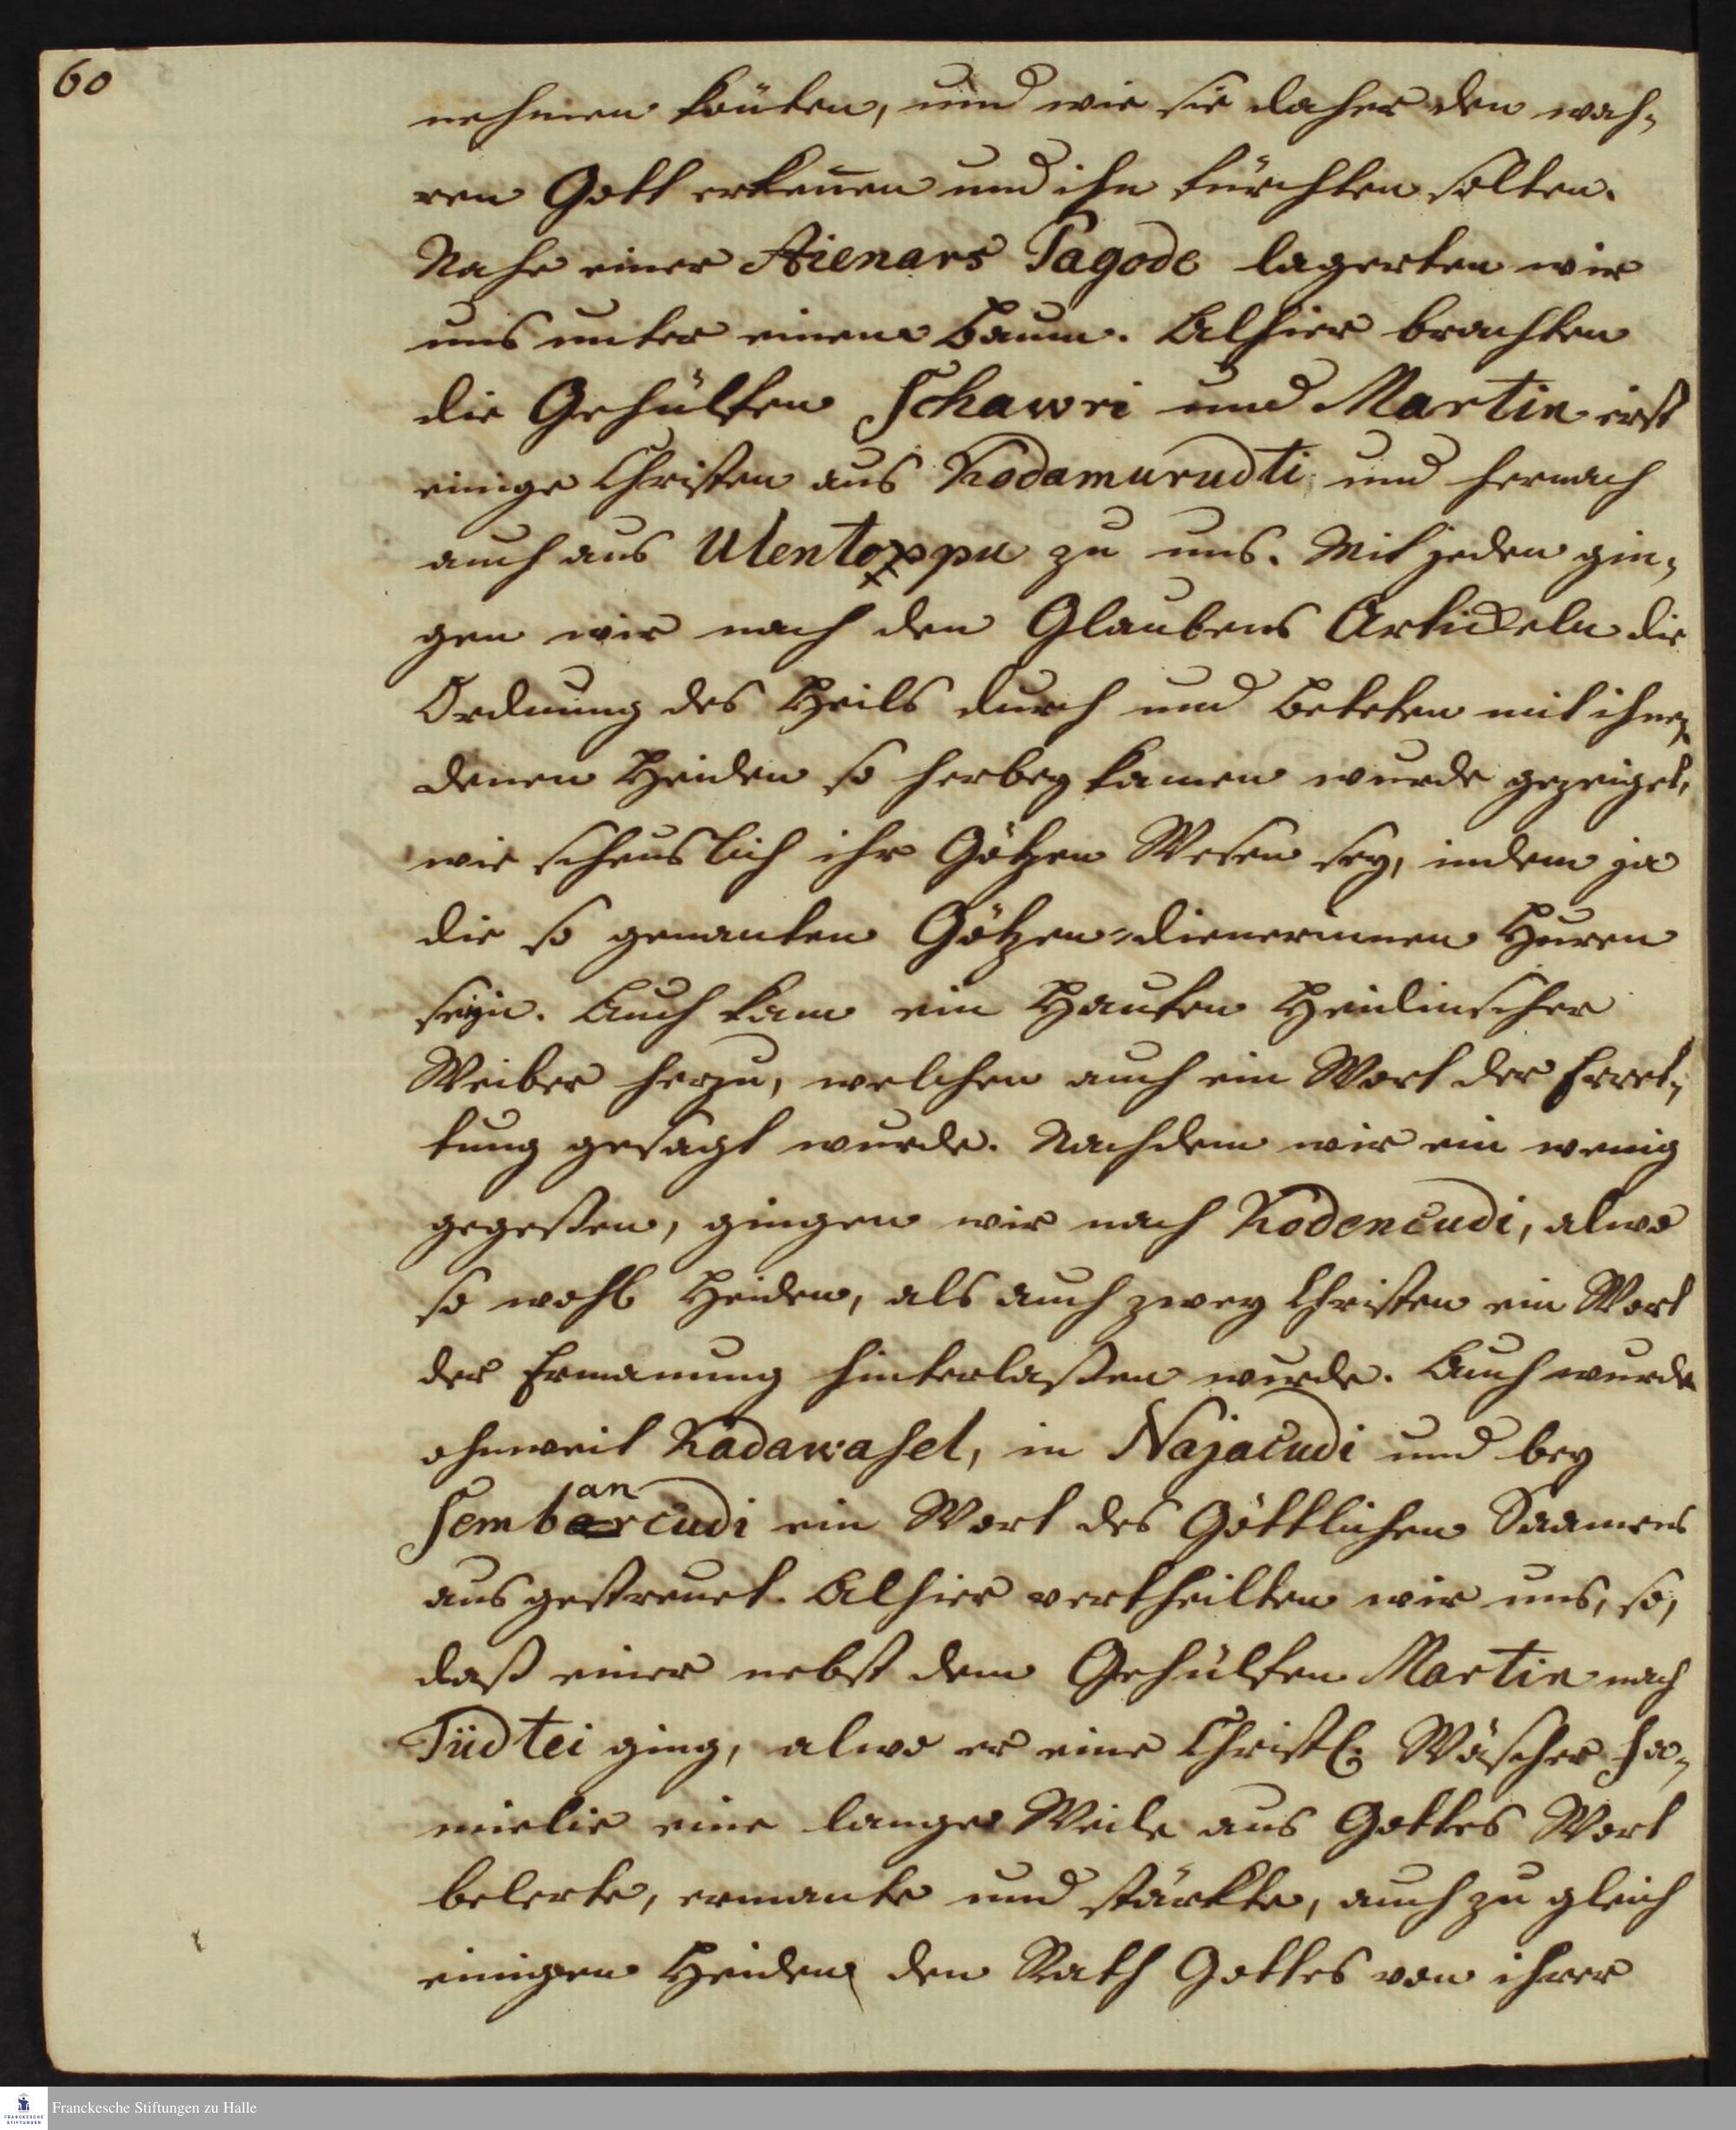 60
nehmen könten, und wie sie daher den wah-
ren Gott erkennen und ihn fürchten solten.
Nahe einer Aienars Pagode lagerten wir
uns unter einem Baum. Alhier brachten
die Gehülfen Schawri und Martin erst
einige Christen aus Kodamurudti und hernach
auch aus Ulentoppu zu uns. Mit jeden gin-
gen wir nach den Glaubens Artickeln die
Ordnung des Heils durch und beteten mit ihnen.
denen Heiden so herbey kamen wurde gezeiget,
wie scheuslich ihr Götzen Wesen sey, indem ja
die so genanten Götzen-dienerinnen Huren
seyn. Auch kam ein Haufen Heidinscher
Weiber herzu, welchen auch ein Wort der Erret-
tung gesagt wurde. Nachdem wir ein wenig
gegeßen, gingen wir nach Kodencudi, alwo
so wohl Heiden, als auch zwey Christen ein Wort
der Ermanung hinterlaßen wurde. Auch wurde
ohnweit Kadawasel, in Najacudi und bey
Sembancudi ein Wort des Göttlichen Saamens
ausgestreuet. Alhier vertheilten wir uns, so,
daß einer nebst dem Gehülfen Martin nach
Tüdtei ging, alwo er eine Christl. Wäscher Fa-
mielie eine lange Weile aus Gottes Wort
belerte, ermante und stärkte, auch zu gleich
einigen Heiden den Rath Gottes von ihrer
Franckesche Stiftungen zu Halle
FRANCKESCHE
STIFTUNGEN